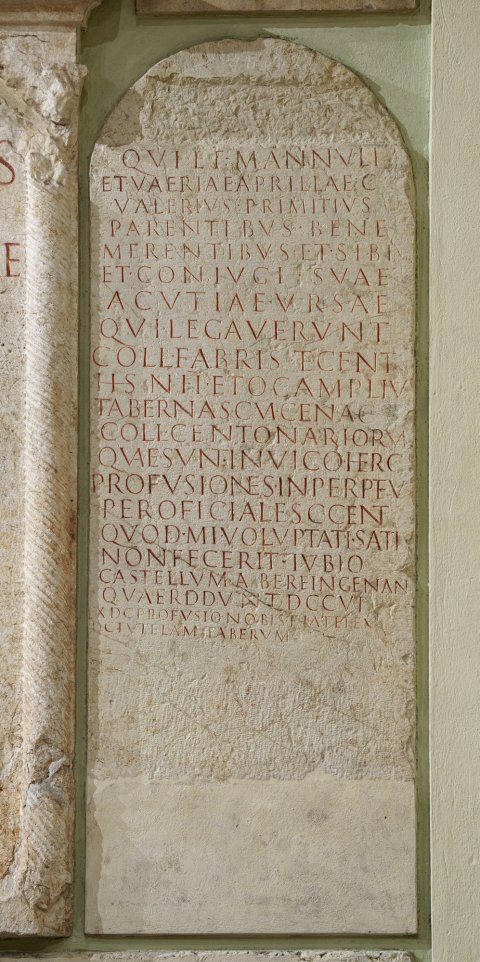 S
E
QVI ET MANNVLI
ET VAERIAE APRILLAE C
VALERIVS PRIMITIVS
PARENTIBVS BENE
MERENTIBVS ET SIBI
ET CONIVGI SVAE
ACVTIAE VRSAE
QVI LEGAVERVNT
COLL FABR IS T CENT
HS N II ET OC AMPLIV
TABERNAS CVM CENAC
COLL CENTONARIORVM
QVAE SVNT IN VICO HERC
PROFVSIONES IN PERPETV
PER OFICIALES C CENT
QVOD MI VOLVPTATI SATI
NON FECERIT IVBIO
CASTELLVM
QVAE
X DC PROFVSIO NOBIS